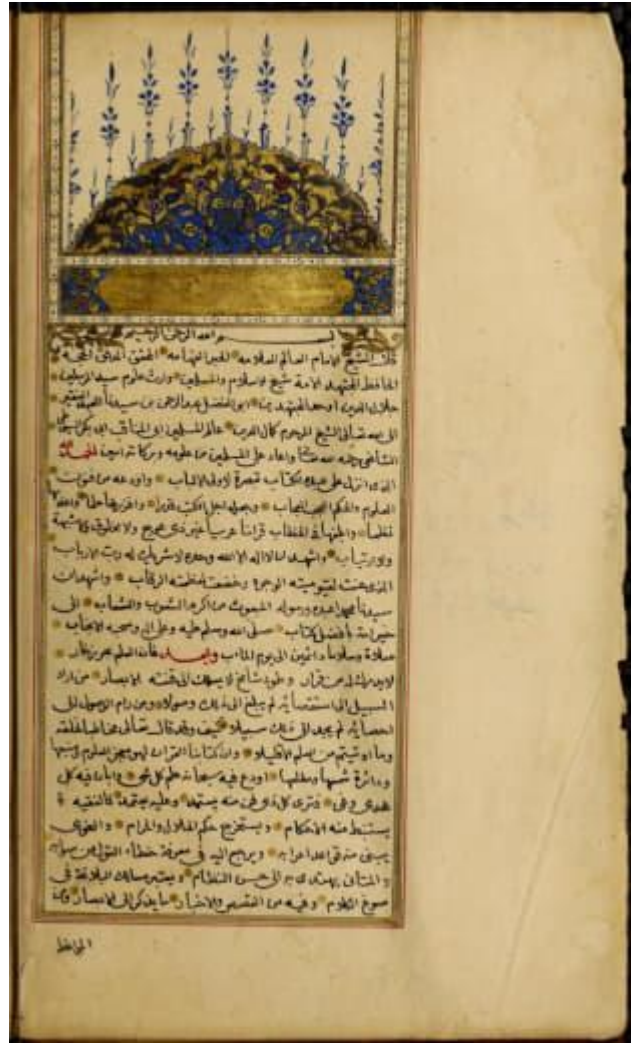 بسم الله الرحمن الرحيم
قال الشيخ الامام العالم العلامه الحبر الفهامه المحقق المدقق الحجه
الحافظ المجتهد الامة شيخ الاسلام والمسلمين وارث علوم سيد المرسلين
جلال الدين اوحد المجتهدين ابو الفضل عبد الرحمن بن سيدنا العبد الفقير
الى الله تعالى الشيخ المرحوم كمال الدين عالم المسلمين ابى المناقب ابى بكر السيوطى
الشافعى رحمه الله تعالى واعاد على المسلمين من علومه وبركاته امين الحمد لله
الذى انزل على عبده الكتاب تبصرة لاولى الالباب واودعه من فنون
العلوم والحكم العجب العجاب وجعله اجل الكتب قدرا واغزرها علما
نظما الخطاب قرانا عربيا غير ذى عوج ولا مخلوق لا شبهة
ولا ارتياب واشهد ان لا اله الا الله وحده لا شريك له رب الارباب
الذى عنت لقيوميته الوجوه وخضعت لعظمته الرقاب واشهد ان
سيدنا محمدا عبده ورسوله المبعوث من اكرم الشعوب والشعاب الى
خير امة بافضل كتاب صلى الله وسلم عليه وعلى اله وصحبه الانجاب
صلاة وسلاما دائمين الى يوم المآب وبعد فان العلم بحر زخار
لا يدرك له من قرار وطود شامخ لا يسلك الى قنته من اراد
السبيل الى استقصائه لم يبلغ الى ذلك وصولا ومن رام الوصول الى
احصائه لم يجد الى ذلك سبيلا كيف وقد قال تعالى مخاطبا لخلقه
وما اوتيتم من العلم الا قليلا وان كتابنا القران لهو مفجر العلوم ومنبعها
ودائرة شمسها ومطلعها اودع فيه سبحانه علم كل شى وابان فيه كل
هدى وغى فترى كل ذى فن منه يستمد وعليه يعتمد فالفقيه
يستنبط منه الاحكام ويستخرج حكم الحلال والحرام والنحوى
يبنى منه قواعد اعرابه ويرجع اليه فى معرفة خطاء القول من صوابه
والبيانى يهتدى به الى حسن النظام ويعتبر مسالك البلاغة فى
صوغ الكلام وفيه من القصص والاخبار ما يذكر اولى الابصار ومن
المواعظ